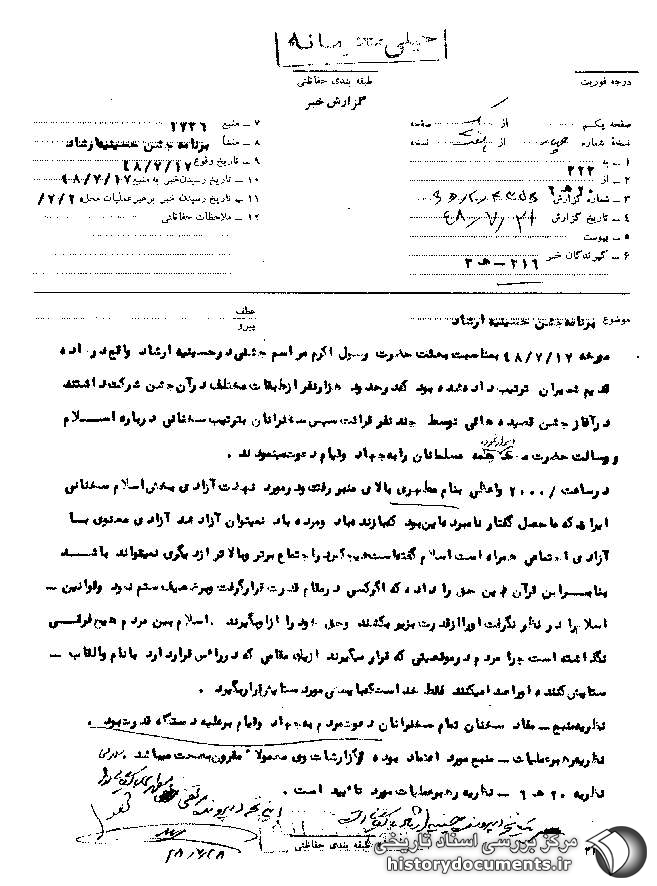 خیلی محرمانه
طبقه بندی حفاظتی
درجه فوریت
گزارش خبر
صفحه یکم از صفحه
نسخه شماره چهار از هفت نسخه
۱ ـ به ۲۲۲
۲ ـ از ۲۰ هـ ۲
۳ ـ شماره گزارش
۴ ـ تاریخ گزارش ۴۸/۷/۲۱
۵ ـ پیوست
۶ ـ گیرندگان خبر ۲۱۶ ـ هـ ۳
۷ ـ منبع ۲۷۲۶
۸ ـ منشأ برنامه جشن حسینیه ارشاد
۹ ـ تاریخ وقوع ۴۸/۷/۱۷
۱۰ ـ تاریخ رسیدن خبر به منبع ۴۸/۷/۱۷
۱۱ ـ تاریخ رسیدن خبر برهبر عملیات محل ۷/۲۰/
۱۲ ـ ملاحظات حفاظتی
موضوع برنامه جشن حسینیه ارشاد
عطف
پیرو
مورخه ۴۸/۷/۱۷ بمناسبت بعثت حضرت رسول اکرم مراسم جشنی در حسینیه ارشاد واقع در جاده
قدیم شمیران ترتیب داده شده بود که در حدود هزار نفر از طبقات مختلف در آن جشن شرکت داشتند
در آغاز جشن قصیده هائی توسط چند نفر قرائت سپس سخنرانان بترتیب سخنانی درباره اسلام
و رسالت حضرت محمد ایراد نموده همه مسلمانان را به جهاد و قیام دعوت مینمودند .
در ساعت /۲۰۰۰ واعظی بنام مطهری بالای منبر رفت و در مورد نهضت آزادی بخش اسلام سخنانی
ایراد که ماحصل گفتار نامبرده این بود که بازنده باد و مرده باد نمیتوان آزاد شد آزادی معنوی با
آزادی اجتماعی همراه است اسلام گفته است هیچ فرد یا اجتماع برتر و بالاتر از دیگری نمیتواند باشد
بنابراین قرآن این حق را داده که اگر کسی در مقام قدرت قرار گرفت و بر ضعیف ستم نمود و قوانین ـ
اسلام را در نظر نگرفت او را از قدرت بزیر بکشند و حق خود را از او بگیرند . اسلام بین مردم هیچ فرقی
نگذاشته است چرا مردم در موقعیتی که قرار میگیرند از یک مقامی که در رأس قرار دارد با نام و القاب ـ
ستایش کننده او را صدا میکنند فقط خدا است که بایستی مورد ستایش قرار بگیرد .
نظریه منبع ـ مفاد سخنان تمام سخنرانان دعوت مردم به جهاد و قیام بر علیه دستگاه قدرت بود .
نظریه رهبر عملیات ـ منبع مورد اعتماد بوده و گزارشات وی معمولا مقرون به صحت میباشد .
نظریه ۲۰ هـ ۲ ـ نظریه رهبر عملیات مورد تأیید است .
طبقه بندی حفاظتی
۴۸/۷/۲۸
مرکز بررسی اسناد تاریخی
historydocuments.ir